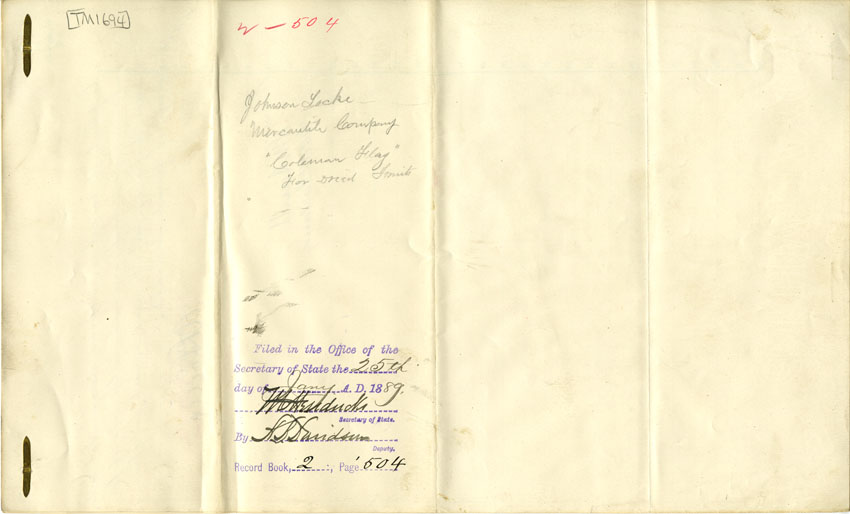 [TM1694]
2-504
Johnson Locke
Mercantile Company
"Coleman Flag"
For Dried Fruits
Filed in the Office of the
Secretary of State the 25th
day of Jany A. D. 1889.
W C Hendricks
Secretary of State.
By Davidson
Deputy.
Record Book, 2, Page 504